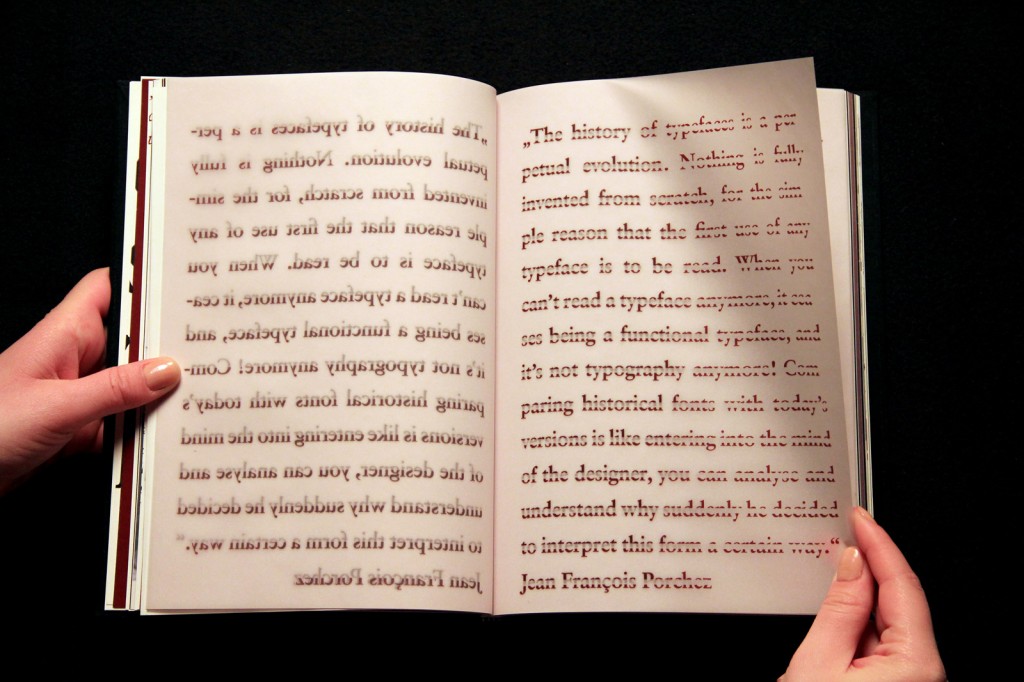 „The history of typefaces is a per-
petual evolution. Nothing is fully
invented from scratch, for the sim-
ple reason that the first use of any
typeface is to be read. When you
can't read a typeface anymore, it cea-
ses being a functional typeface, and
it's not typography anymore! Com-
paring historical fonts with today's
versions is like entering into the mind
of the designer, you can analyse and
understand why suddenly he decided
to interpret this form a certain way.“
Jean François Porchez
„The history of typefaces is a per
petual evolution. Nothing is fully
invented from scratch, for the sim
ple reason that the first use of any
typeface is to be read. When you
can't read a typeface anymore, it cea
ses being a functional typeface, and
it's not typography anymore! Com
paring historical fonts with today's
versions is like entering into the mind
of the designer, you can analyse and
understand why suddenly he decided
to interpret this form a certain way.“
Jean François Porchez